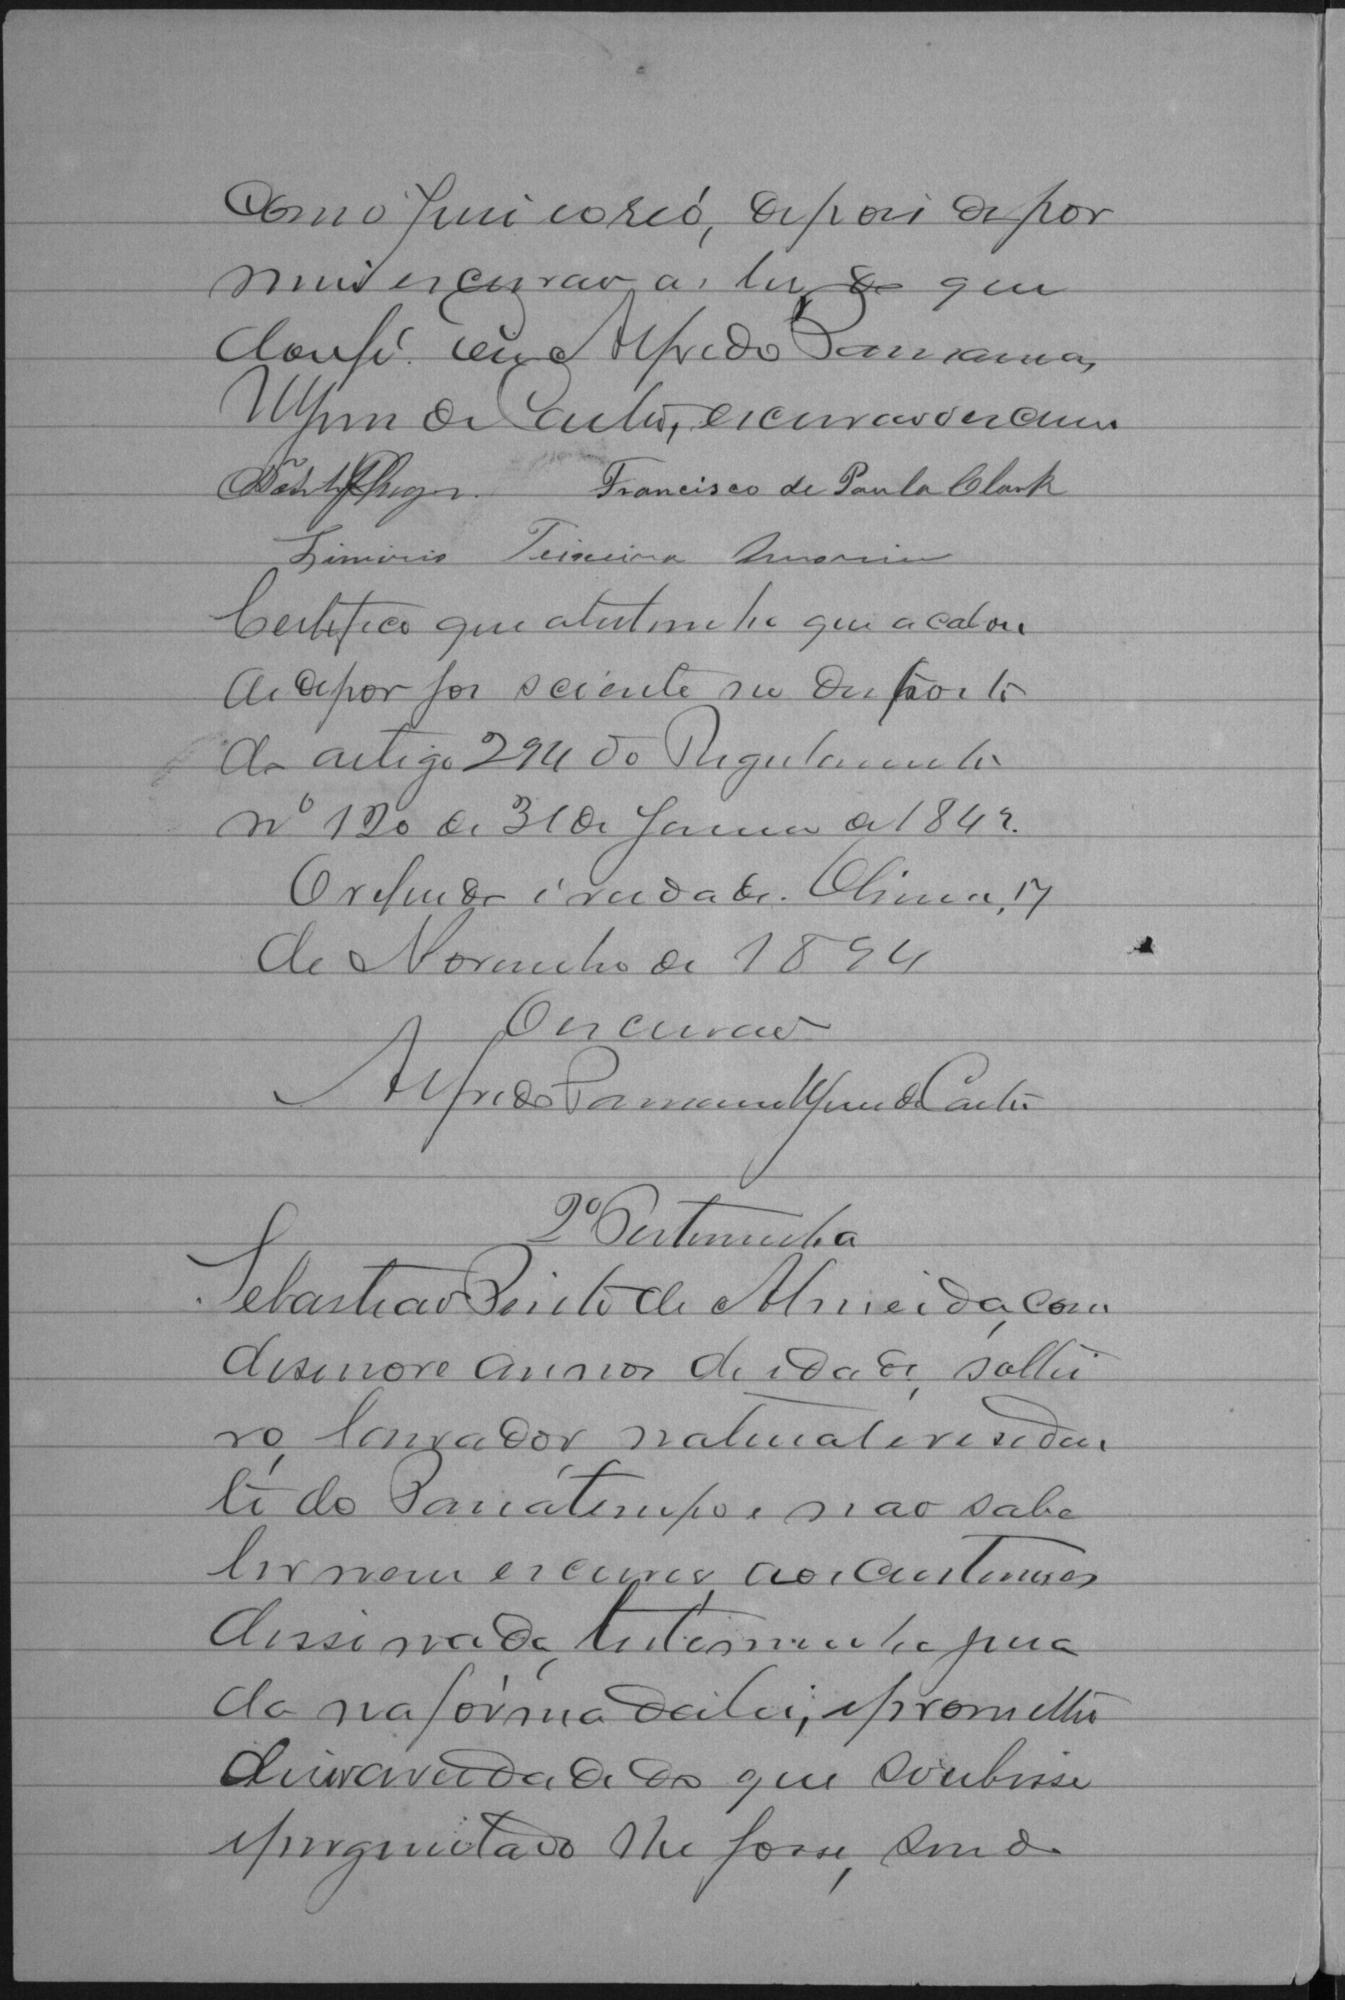 Como Juiz e o réo, depois de por
mim escrivão as ler do que
dou fé. Eu Alfredo
de Castro, escrivão o escrevi.
Francisco de Paula Clark
Teixeira Amorim
Certifico que a testemunha que acabou
de depor foi sciente de disposto
do artigo 294 do Regulamento
nº 120 de 31 de Janeiro de 1842.
O referido é verdade. Olinda, 17
de Novembro de 1894
O escrivão
Alfredo de Castro
2º Testemunha
Sebastião Pinto de Almeida, com
desenove annos de idade, soltei
ro, lavrador, natural e residen
te do e não sabe
ler nem escrever, aos custumes
disse nada, testemunha jura
da na fórma da lei, e prometteo
diser a verdade do que soubesse
e perguntado lhe fosse, sendo